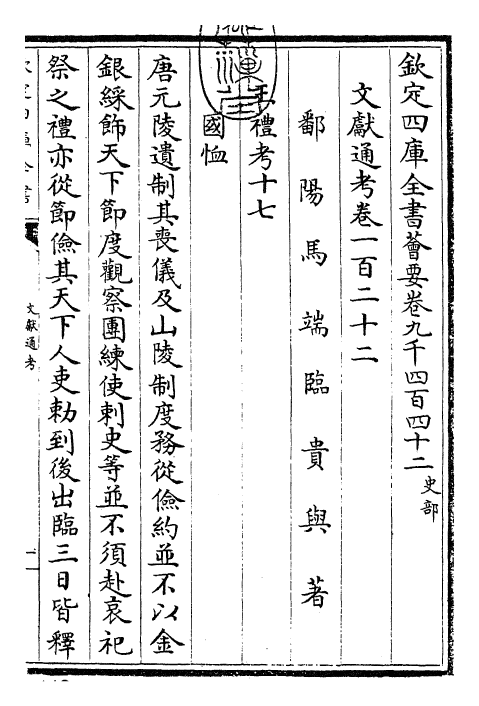 欽定四庫全書薈要卷九千四百四十二 史部
文獻通考卷一百二十二
鄱陽馬端臨貴與著
王禮考十七
國恤
唐元陵遺制其喪儀及山陵制度務從儉約並不以金
銀綵飾天下節度觀察團練使刺史等並不須赴哀祀
祭之禮亦從節儉其天下人吏勅到後出臨三日皆釋
文獻通考
一